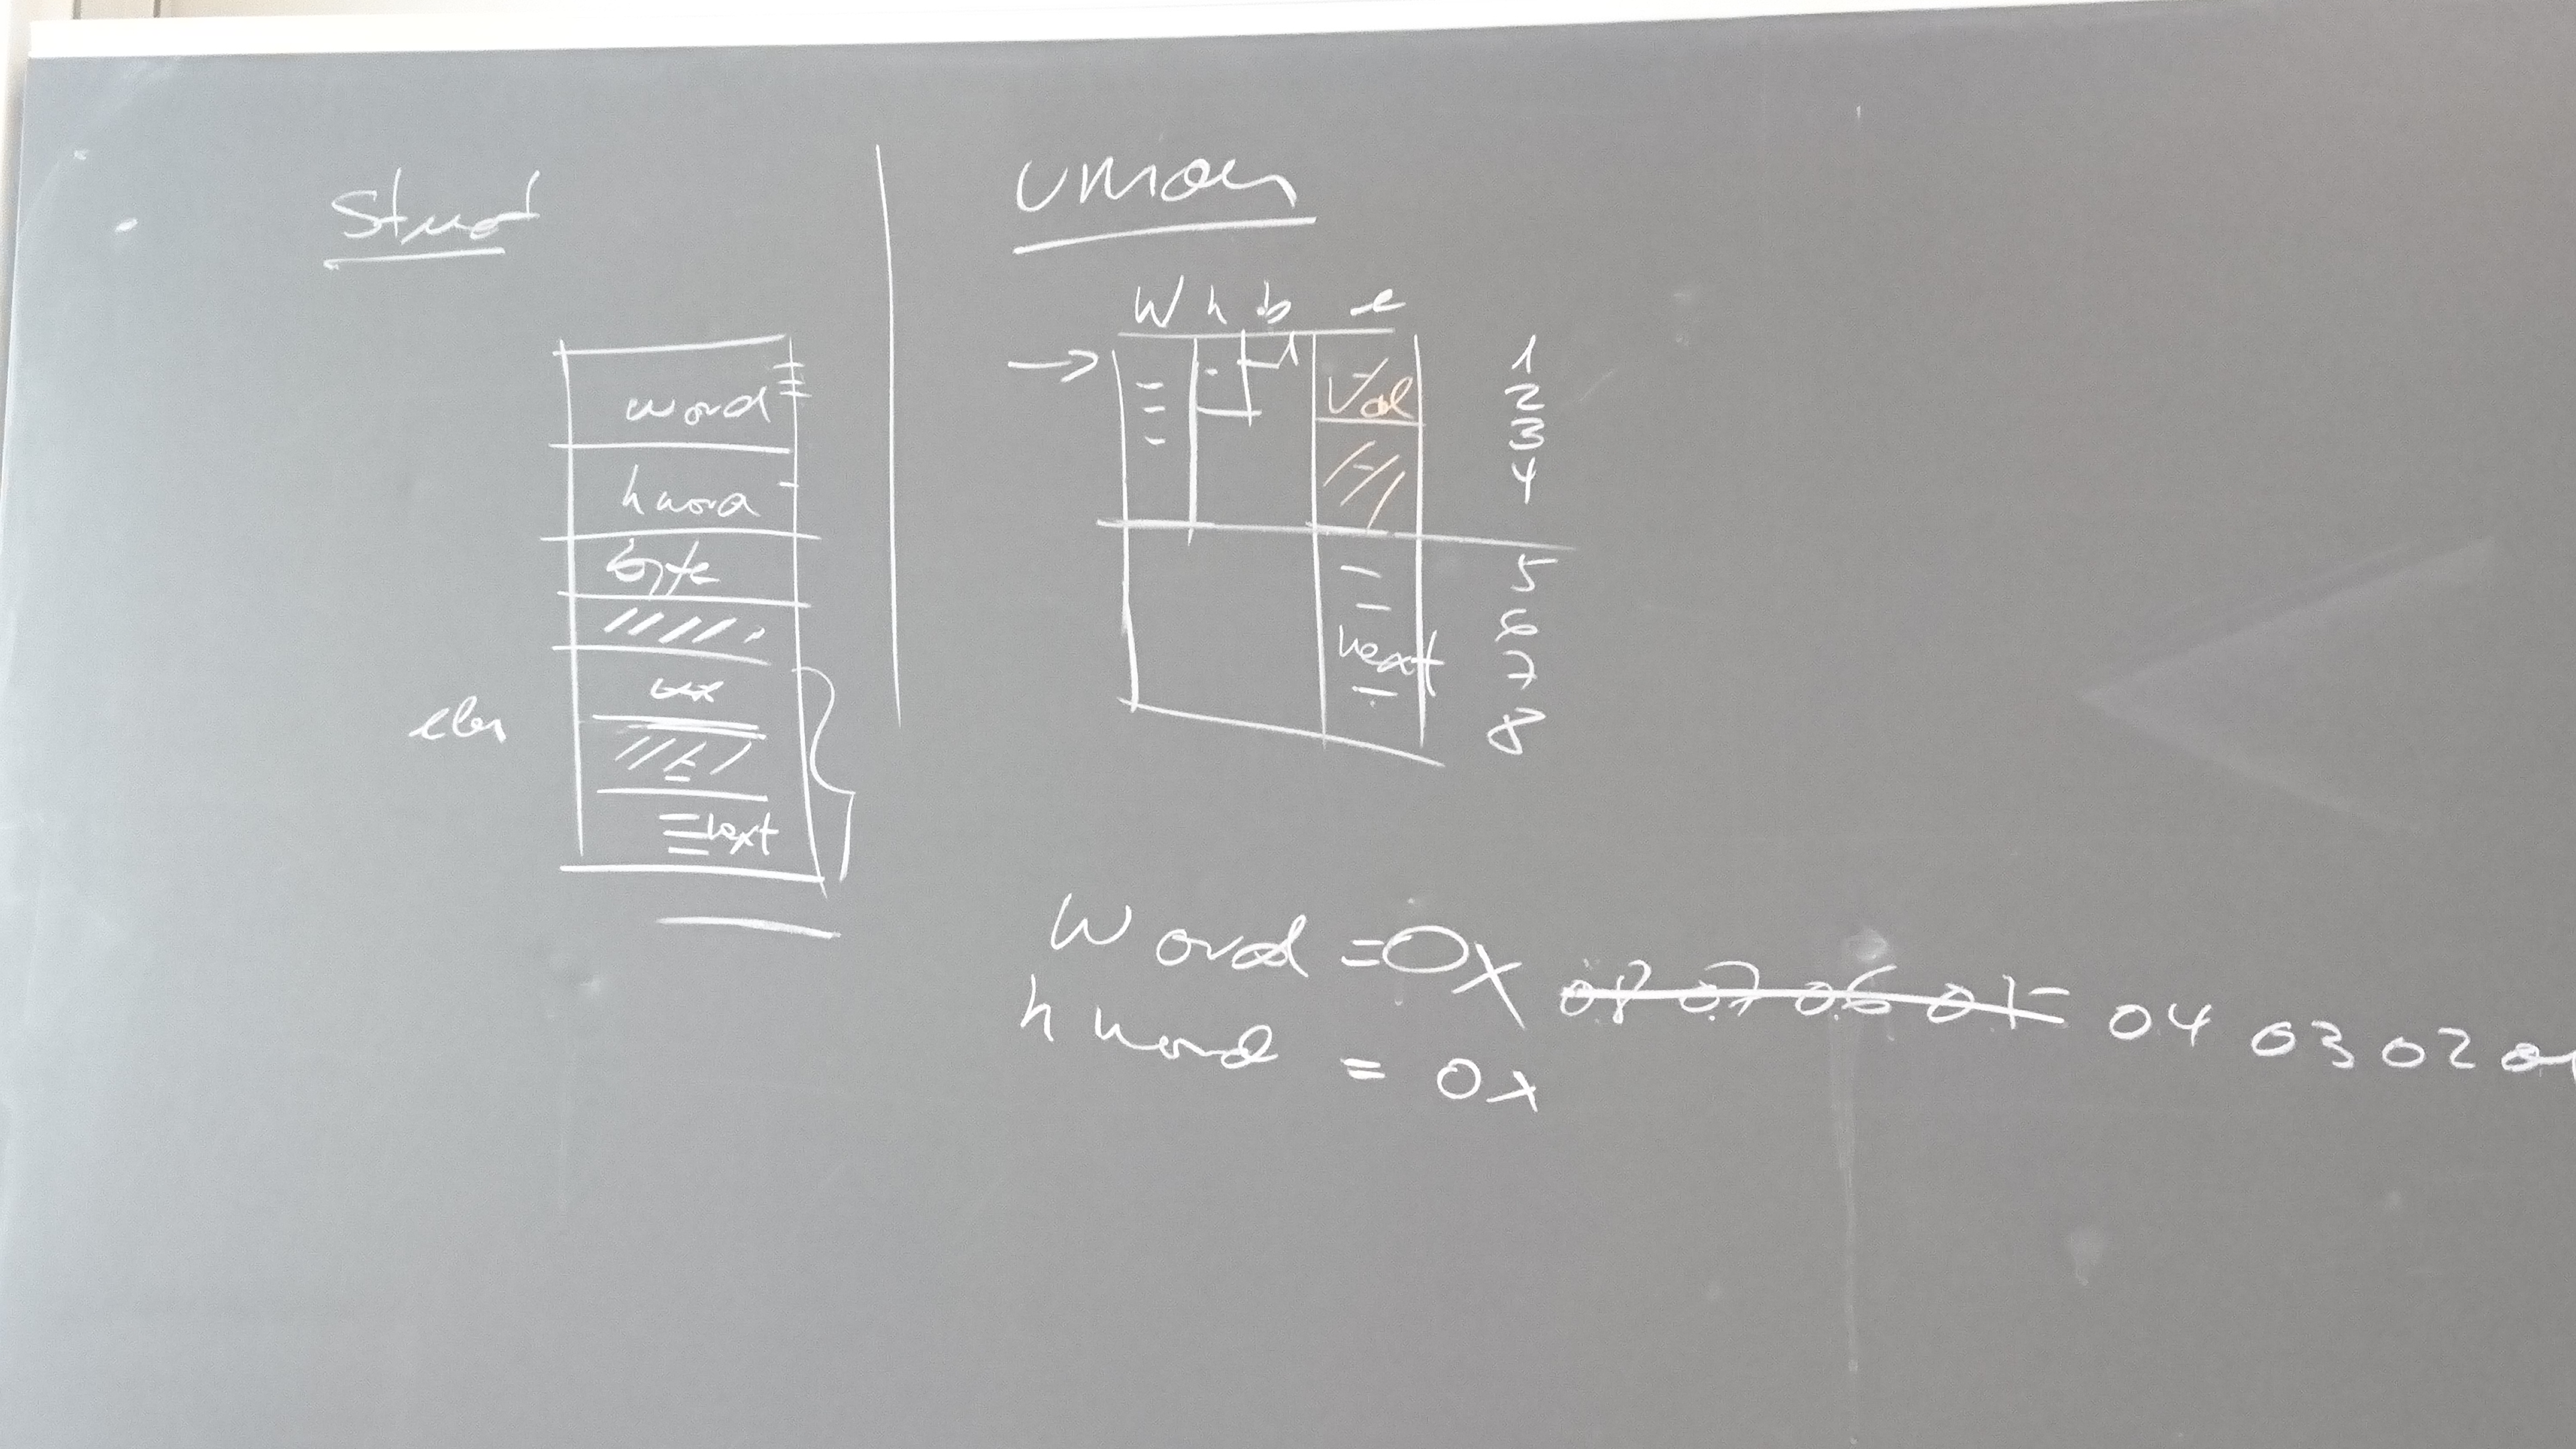 Struct
word
hword
byte
elem
next
Union
W h b e
1
Val
2
3
4
5
6
next
7
8
Word = 0x 08 07 06 01 04 03 02 01
hword = 0x